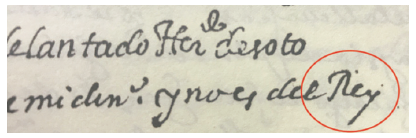 elantado Her de soto
emidino. y no es del Rey